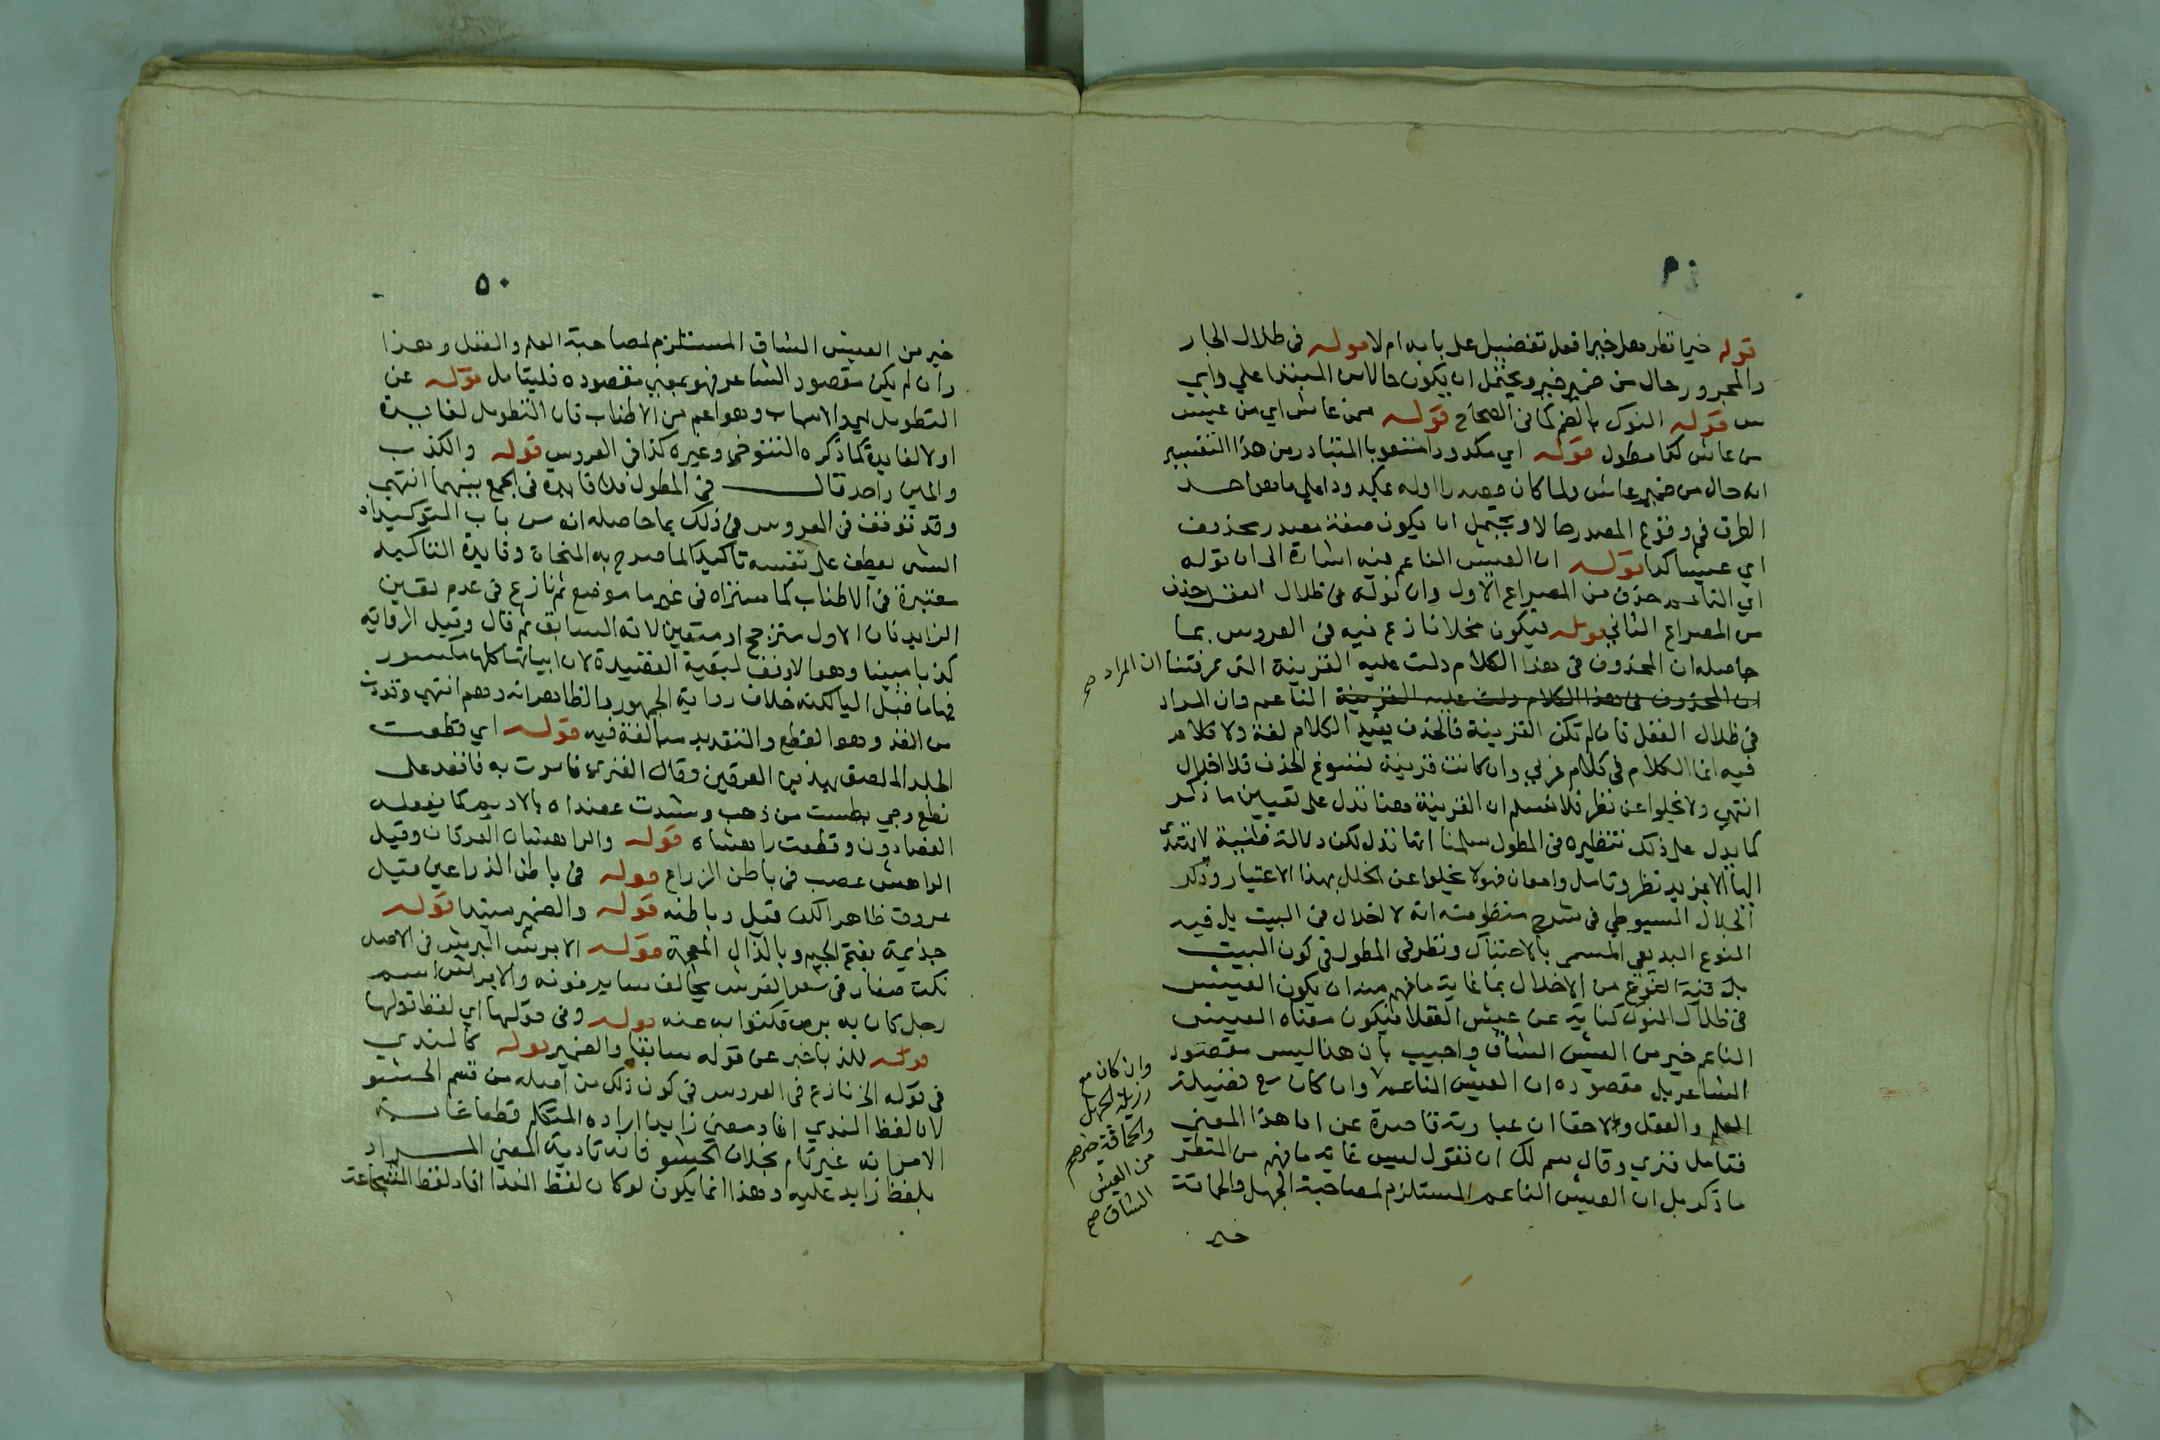 قوله خير انظر هل خير افعل تفضيل على بابه ام لا قوله فى ظلال الجار
والمجرور حال من ضمير خير ويحتمل ان يكون حالا من المبتدا علي رأيي
س قوله النوك بالضم كما فى الصحاح قوله ممن عاش اي من عيش
من عاش كدا مطول قوله اي مكدودا متعوبا المتبادر من هذا التفسير
انه حال من ضمير عاش ولما كان مصدرا اوله بمكدود اعلي ما هو احد
الطرق في وقوع المصدر حالا ويحتمل ان يكون صفة مصدر محذوف
اي عيشا كدا قوله ان العيش الناعم فيه اشارة الى ان قوله
اي الناعم حذف من المصراع الاول وان قوله في ظلال العقل حذف
من المصراع الثاني قوله فيكون مخلا نازع فيه فى العروس بما
حاصله ان المحذوف فى هذا الكلام دلت عليه القرينة التى عرفتنا ان المراد صح
ان المحذوف فى هذا الكلام دلت عليه القرينة الناعم وان المراد
فى ظلال العقل فان لم تكن القرينة فالحذف يفيد الكلام لغة ولا كلام
فيه انما الكلام فى كلام عربي وان كانت قرينة تسوغ الحذف فلا اخلال
انتهي ولا يخلوا عن نظر فلا نسلم ان القرينة هنا تدل على تعيين ما ذكر
كما يدل على ذلك تنظيره فى المطول سلمنا انها تدل لكن دلالة خفية لا يهتدى
اليها الا بمزيد نظر وتامل وامعان فهو لا يخلوا عن الخلل بهذا الاعتبار وذكر
الجلال السيوطي فى شرح منظومته انه لا اخلال فى البيت بل فيه
النوع البديعي المسمى بالاحتباك ونظر فى المطول فى كون البيت
من الاخلال بما غايته ما فهم منه ان يكون العيش
فى ظلال النوك كناية عن عيش العقلا فيكون معناه العيش
الناعم خير من العيش الشاق واجيب بان هذا ليس مقصود
الشاعر بل مقصوده ان العيش الناعم وان كان مع فضيلة
العلم والعقل ولا خفا ان عبارته قاصرة عن افادة هذا المعني
فتامل فنري وقال سم لك ان تقول ليس غاية ما فهم من النظر
ما ذكر بل ان العيش الناعم المستلزم لمصاحبة الجهل والحماقة
خير
وان كان مع
رزيلة الجهل
والحماقة خير
من العيش
الشاق صح
٥٠
خير من العيش الشاق المستلزم لمصاحبة العلم والعقل وهذا
وان لم يكن مقصود الشاعر فهو بمعني مقصوده فليتامل قوله عن
التطويل هو والاسهاب وهو اعم من الاطناب فان التطويل لفايدة
او لا لفايدة كما ذكره التنوخي وغيره كذا فى العروس قوله والكذب
والمين واحد قال فى المطول فلا فايدة فى الجمع بينهما انتهي
وقد توقف فى العروس في ذلك بما حاصله انه من باب التوكيد اذ
الشى يعطف على نفسه تاكيدا لما صرح به النحاة وفايدة التاكيد
معتبرة فى الاطناب كما ستراه فى غير ما موضع ثم نازع فى عدم تعين
الزايد فان الاول مترجح او متعين لانه السابق ثم قال وقيل الرواية
كذبا مبينا وهو الاوفق لبقية القصيدة لان ابياتها كلها مكسور
فيها ما قبل الياء لكنه خلاف رواية الجمهور والظاهر انه وهم انتهي وقددت
من القد وهو القطع والتقديد مبالغة فيه قوله اي قطعت
الجلد الملصق بهذين العرقين وقال الفنرى فامرت به فانقعد على
نطع وجي بطست من ذهب وشدت عضداه بالاديم كما يفعله
الفصادون وقطعت راهشاه قوله والراهشان العرقان وقيل
الراهش عصب فى باطن الزراع قوله فى باطن الذراعين وقيل
عروق ظاهر الكف وقيل وباطنه قوله والضمير مبتدا قوله
جذيمة بفتح الجيم وبالذال المعجمة قوله الابرش البرش فى الاصل
نكت صغار فى شعر الفرس يخالف ساير لونه والابرش اسم
رجل كان به برص فكنوا به عنه قوله وفى قولها اي لفظ قولها
قوله للذبا خبر عن قوله سابقا والضمير قوله كالندي
فى قوله الخ نازع فى العروس فى كون ذلك من اصله من قسم الحشو
لان لفظ الندي افاد معني زايدا اراده المتكلم قطعا غاية
الامر انه غير تام بخلاف الحشو فانه تادية المعني المراد
بلفظ زايد عليه وهذا انما يكون لو كان لفظ الندا افاد لفظ الشجاعة